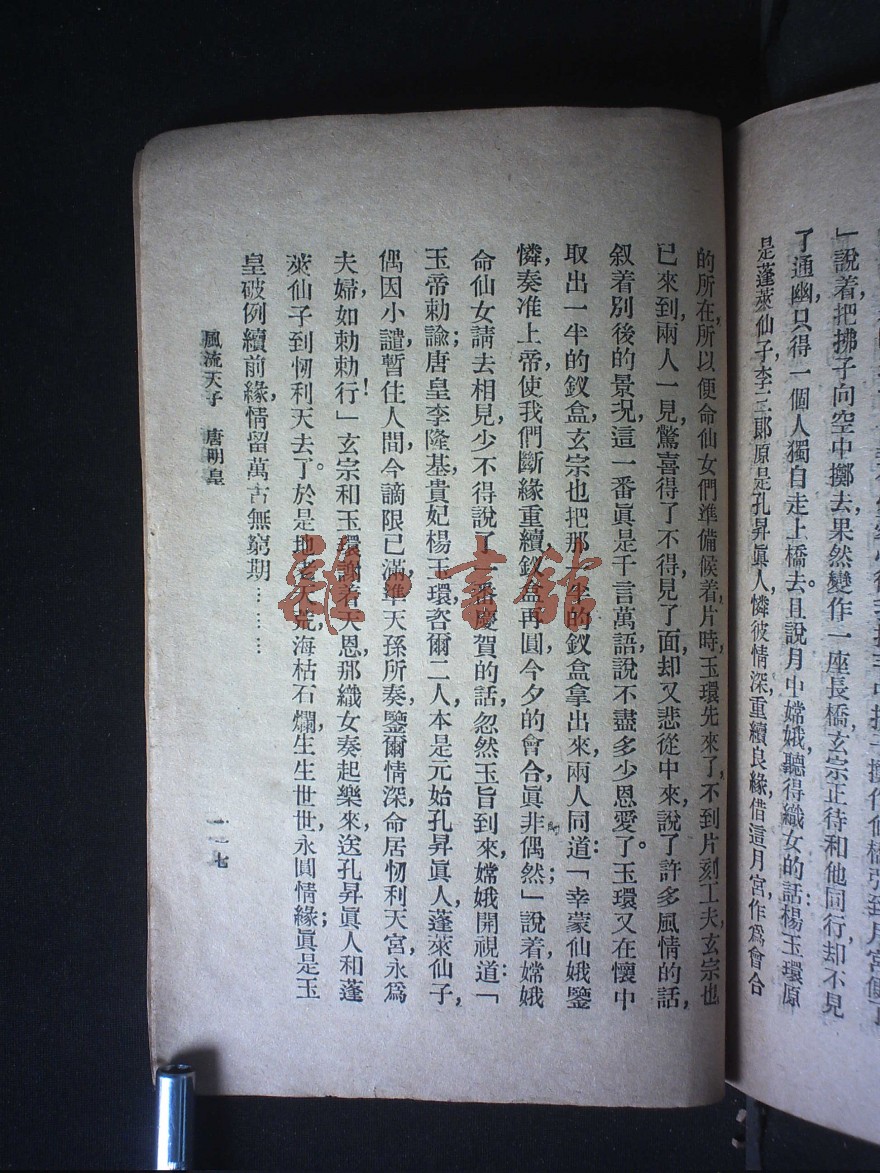 」說着，把拂子向空中擲去，果然變作一座長橋，玄宗正待和他同行，却不見
了通幽，只得一個人獨自走上橋去。且說月中嫦娥，聽得織女的話：楊玉環原
是蓬萊仙子，李三郎原是孔昇眞人，憐彼情深，重續良緣，借這月宮作爲會合
的所在，所以便命仙女們準備候着，片時，玉環先來了，不到片刻工夫，玄宗也
已來到，兩人一見，驚喜得了不得，見了面，却又悲從中來，說了許多風情的話，
叙着別後的景况，這一番眞是千言萬語，說不盡多少恩愛了。玉環又在懷中
取出一半的釵盒，玄宗也把那一半的釵盒拿出來，兩人同道：「幸蒙仙娥鑒
憐，奏准上帝，使我們斷緣重續，釵盒再圓，今夕的會合，眞非偶然；」說着，嫦娥
命仙女請去相見，少不得說了一番慶賀的話，忽然玉旨到來，嫦娥開視道：「
玉帝勅諭唐皇李隆基，貴妃楊玉環；咨爾二人，本是元始孔昇眞人，蓬萊仙子，
偶因小譴，暫住人間，今謫限已滿，準天孫所奏，鑒爾情深，命居忉利天宮，永爲
夫婦，如勅勅行！」玄宗和玉環謝着天恩，那織女奏起樂來，送孔昇眞人和蓬
萊仙子到忉利天去了。於是地老天荒，海枯石爛，生生世世，永圓情緣；眞是玉
皇破例續前緣，情留萬古無窮期………
風流天子　唐明皇
一二七
雜·書館